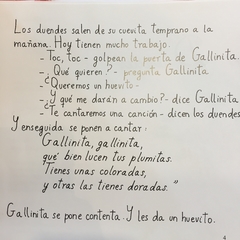 Los duendes salen de su cuevita temprano a la
mañana. Hoy tienen mucho trabajo.
-Toc, toc - golpean la puerta de Gallinita.
-¿Qué quieren? - pregunta Gallinita.
-Queremos un huevito-
-¿Y qué me darán a cambio? - dice Gallinita
-Te cantaremos una canción - dicen los duendes
Y enseguida se ponen a cantar:
Gallinita, gallinita,
qué bien lucen tus plumitas.
Tienes unas coloradas,
y otras las tienes doradas."
Gallinita se pone contenta. Y les da un huevito.